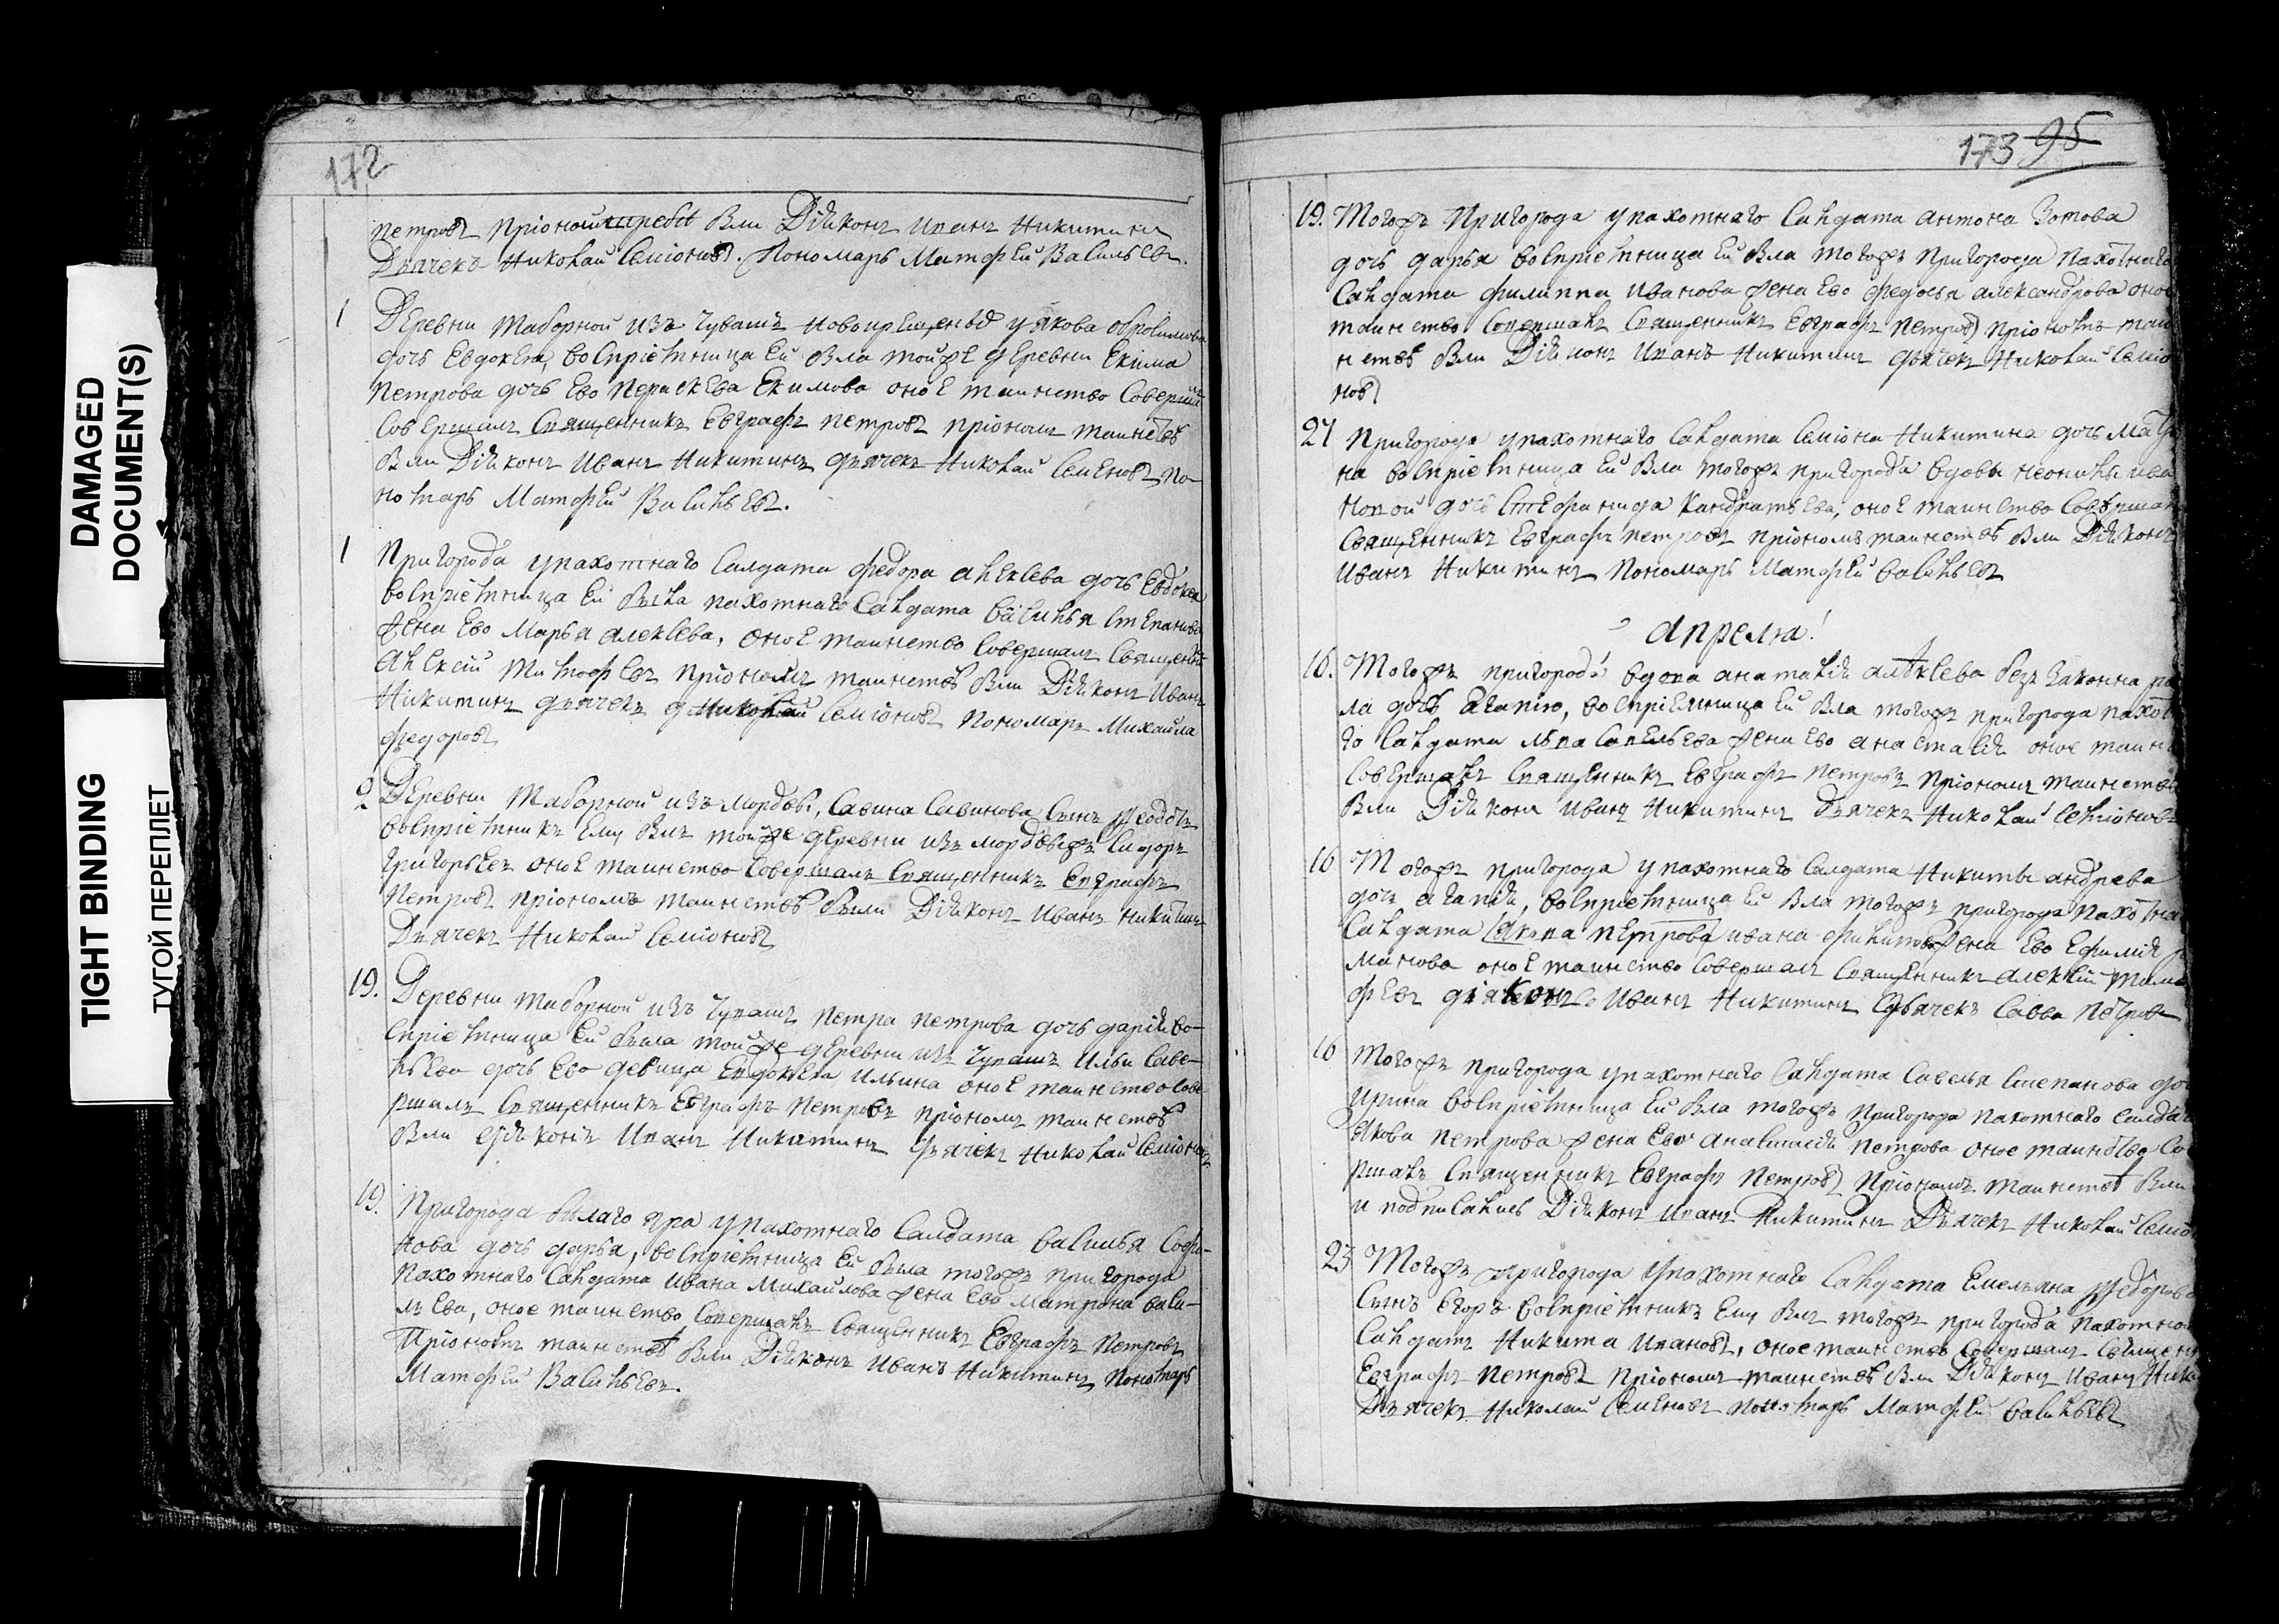 DAMAGED
DOCUMENT(S)
TIGHT BINDING
ТУГОЙ ПЕРЕПЛЕТ
172
петровъ при ономъ были Діяконъ Иванъ Никитинъ
Дьячекъ Николай Семіоновъ. Пономарь Матфей Васильевъ.
1 Деревни Таборной изъ чувашъ новокрещеныхъ у якова
дочь Евдокея, воспріемница Ей была тойже деревни Екима
Петрова дочь Ево Пераскева Екимова оное таинство Соверша
Совершалъ Священникъ Евграфъ петровъ приономъ таинствѣ
были Діяконъ Иванъ Никитинъ дьячекъ Николай Семеновъ По-
номарь Матфей Васильевъ.
1 Пригорода упахотнаго Салдата федора Алексева дочь Евдокея
воспріемница Ей была пахотнаго Салдата василья степанова
жена Ево Марья алексева, оное таинство совершалъ Священни
Алексей Тимофеевъ приономъ таинствѣ были Діяконъ Иванъ
Никитинъ дьячекъ Николай Семіоновъ пономарь Михайла
федоровъ
2 Деревни Таборной изъ мордвы, Савина Савинова Сынъ
воспріемникъ Ему былъ тойже деревни изъ мордвыжъ Сидоръ
григорьевъ оное таинство совершалъ Священникъ Евграфъ
Петровъ приономъ таинствѣ были Діяконъ Иванъ никитинъ
Дьячекъ Николай Семіоновъ
19. Деревни таборной изъ чувашъ петра петрова дочь дарія во-
спріемница Ей была тойже деревни изъ чувашъ Ильи Саве-
льева дочь Ево девица Евдокея Ильина оное таинство сове-
ршалъ Священникъ Евграфъ петровъ приономъ таинствѣ
были діяконъ Иванъ Никитинъ дьячекъ Николай Семіоновъ
19. Пригорода Белаго яра упахотнаго Салдата василья Софо-
нова дочь дарья, воспріемница Ей была тогожъ пригорода
пахотнаго Салдата ивана Михайлова жена Ево матрона васи-
льева, оное таинство Совершалъ Священникъ Евграфъ Петровъ
Приономъ таинствѣ были Діяконъ Иванъ Никитинъ пономарь
Матфей Васильевъ.
173 95
19. Тогожъ Пригорода упахотнаго Салдата антона Зотова
дочь дарья воспріемница Ей была тогожъ пригорода пахотнаго
Салдата филиппа иванова жена Ево федосья александрова оное
таинство Совершалъ Священникъ Евграфъ петровъ приономъ таи
нствѣ были Діяконъ Иванъ Никитинъ дьячекъ Николай Семіо
новъ
27 Пригорода упахотнаго Салдата Семіона Никитина дочь Матре
на воспріемница Ей была тогожъ пригорода вдовы неонилы ива
новой дочь Стефанида Кандратьева, оное таинство Совершалъ
Священникъ Евграфъ петровъ приономъ таинствѣ были Діяконъ
Иванъ Никитинъ Пономарь Матфей васильевъ
Апреля!
16. Тогожъ пригорода вдова анаталія алексева безъ законна ра
ла дочь Агапію, воспріемница Ей была тогожъ пригорода пахот
го Салдата льва Савельева жена Ево анастасія оное таинс
Совершалъ Священникъ Евграфъ Петровъ приономъ таинствѣ
были Діяконъ иванъ Никитинъ дьячекъ Николай Семіоновъ
16 Тогожъ пригорода упахотнаго Салдата Никиты андрева
дочь агапія, воспріемница Ей была тогожъ пригорода пахотна
Салдата ивана жена Ево Ефимія
манова оное таинство Совершалъ Священникъ алексей тимо
феевъ діяконъ Иванъ Никитинъ дьячекъ Савва Петровъ
16 Тогожъ пригорода упахотнаго Салдата Савелья Степанова доч
Ирина воспріемница Ей была тогожъ пригорода пахотнаго салдат
Якова петрова жена Ево анастасія петрова оное таинство Со
ршалъ Священникъ Евграфъ Петровъ Приономъ таинствѣ были
и подписались Діяконъ Иванъ Никитинъ Дьячекъ Николай Семіо
23 Тогожъ пригорода Упахотнаго Салдата Емельяна федорова
Сынъ Егоръ воспріемникъ Ему былъ тогожъ пригорода пахотной
Салдатъ Никита Ивановъ, оное таинство Совершалъ Священн
Евграфъ петровъ приономъ таинствѣ были Діяконъ Иванъ Ники
Дьячекъ Николай Семеновъ пономарь Матфей васильевъ